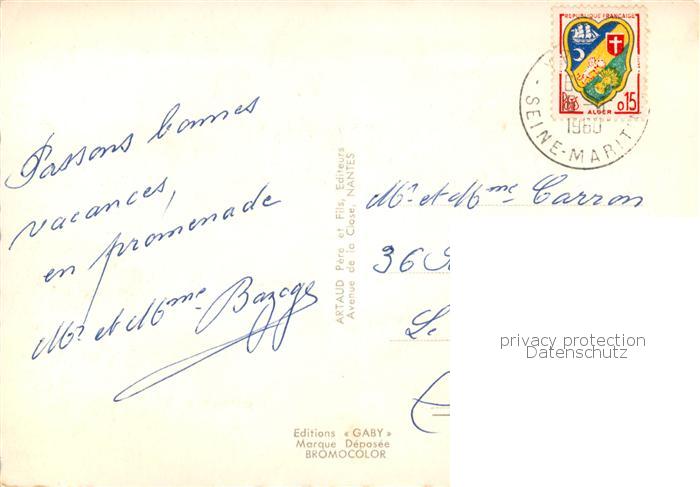 REPUBLIQUE FRANÇAISE
ALGER
0,15
1960
SEINE-MARIT
Passons bonnes
vacances,
en promenade
Mr et Mme Bazoge
ARTAUD Père et Fils, Editeurs
Avenue de la Close, NANTES
Mr et Mme Carron
36
Le
privacy protection
Datenschutz
Editions « GABY »
Marque Déposée
BROMOCOLOR